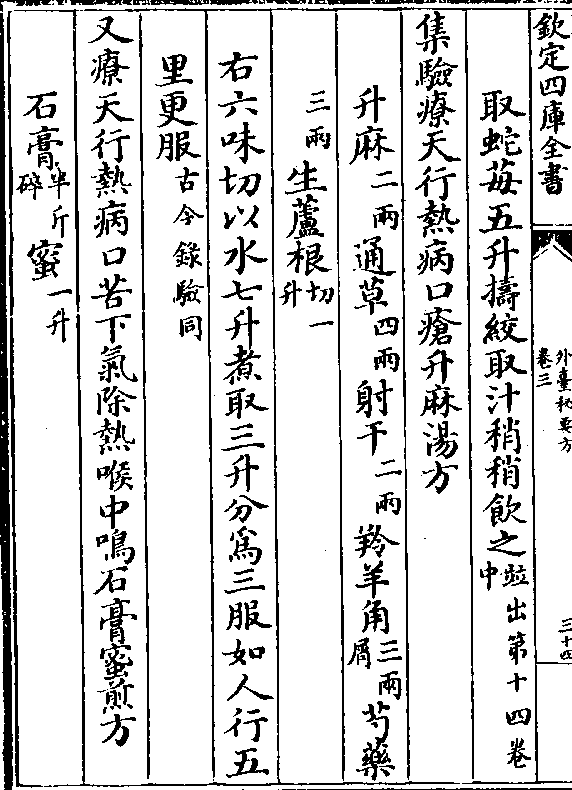 欽定四庫全書
外臺秘要方
卷三
三十四
取蛇莓五升擣絞取汁稍稍飲之並出第十四卷中
集驗療天行熱病口瘡升麻湯方
升麻二兩通草四兩射干二兩羚羊角三兩屑芍藥
三兩生蘆根切一升
右六味切以水七升煮取三升分為三服如人行五
里更服古今錄驗同
又療天行熱病口苦下氣除熱喉中鳴石膏蜜煎方
石膏半斤碎蜜一升